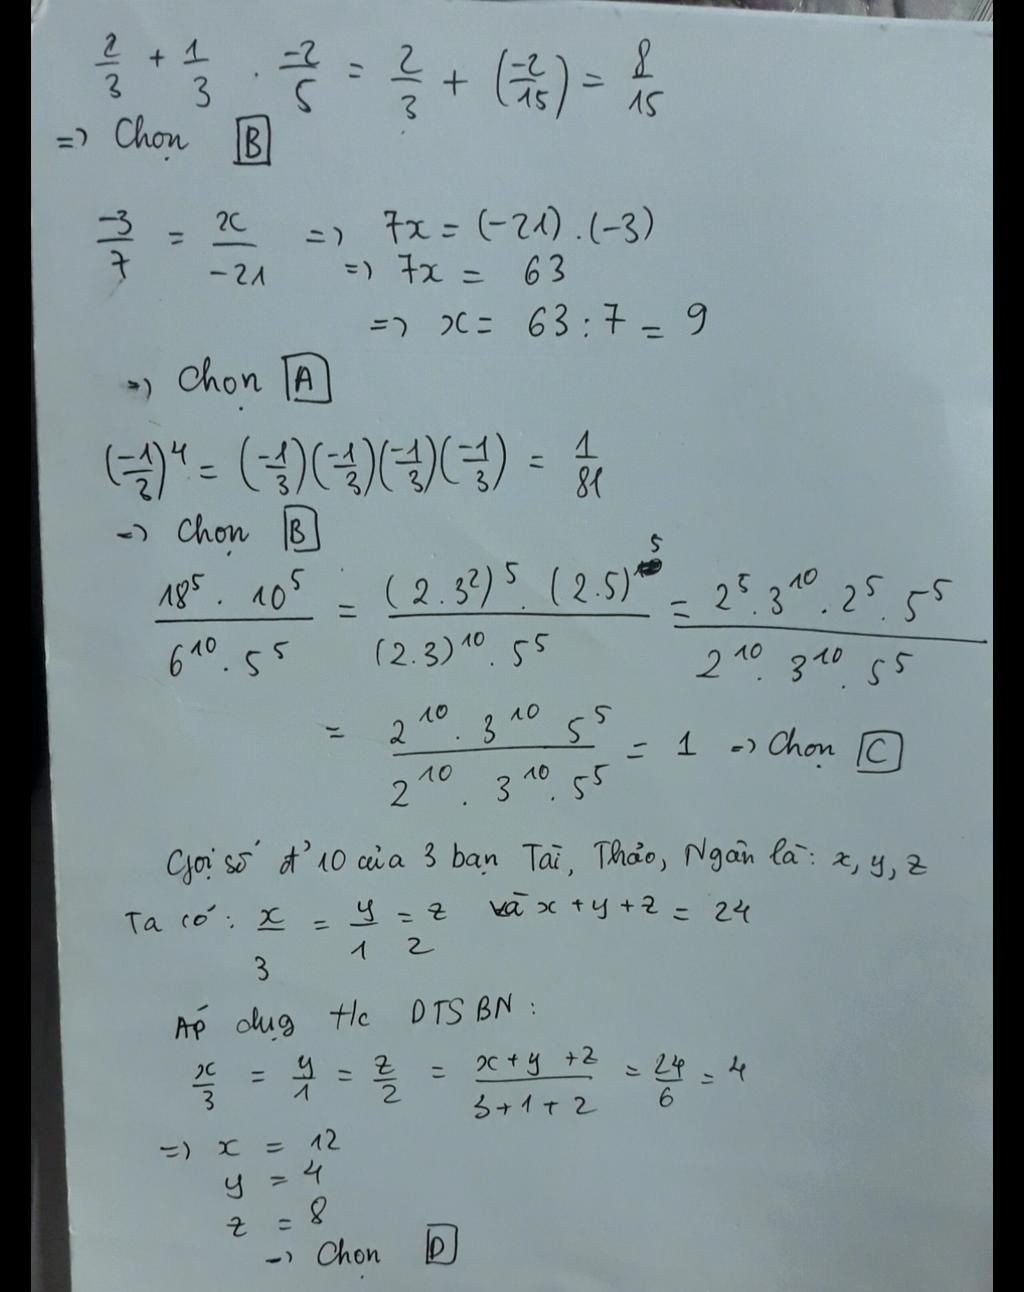 2/3 + 1/3 . -2/5 = 2/3 + (-2/15) = 8/15
=> Chọn B
-3/7 = x/-21 => 7x = (-21).(-3)
=> 7x = 63
=> x = 63 : 7 = 9
=> Chọn A
(-1/3)^4 = (-1/3)(-1/3)(-1/3)(-1/3) = 1/81
=> Chọn B
18^5 . 10^5 / 6^10 . 5^5 = (2.3^2)^5 . (2.5)^5 / (2.3)^10 . 5^5 = 2^5 . 3^10 . 2^5 . 5^5 / 2^10 . 3^10 . 5^5
= 2^10 . 3^10 5^5 / 2^10 . 3^10 . 5^5 = 1 => Chọn C
Gọi số đ' 10 của 3 bạn Tài, Thảo, Ngân là: x, y, z
Ta có: x/3 = y/1 = z/2 và x + y + z = 24
Áp dụg t/c DTSBN:
x/3 = y/1 = z/2 = x + y + z / 3 + 1 + 2 = 24/6 = 4
=> x = 12
y = 4
z = 8
=> Chọn D